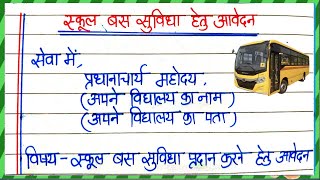 स्कूल बस सुविधा हेतु आवेदन
सेवा में,
प्रधानाचार्य महोदय,
(अपने विद्यालय का नाम)
(अपने विद्यालय का पता)
विषय - स्कूल बस सुविधा प्रदान करने हेतु आवेदन